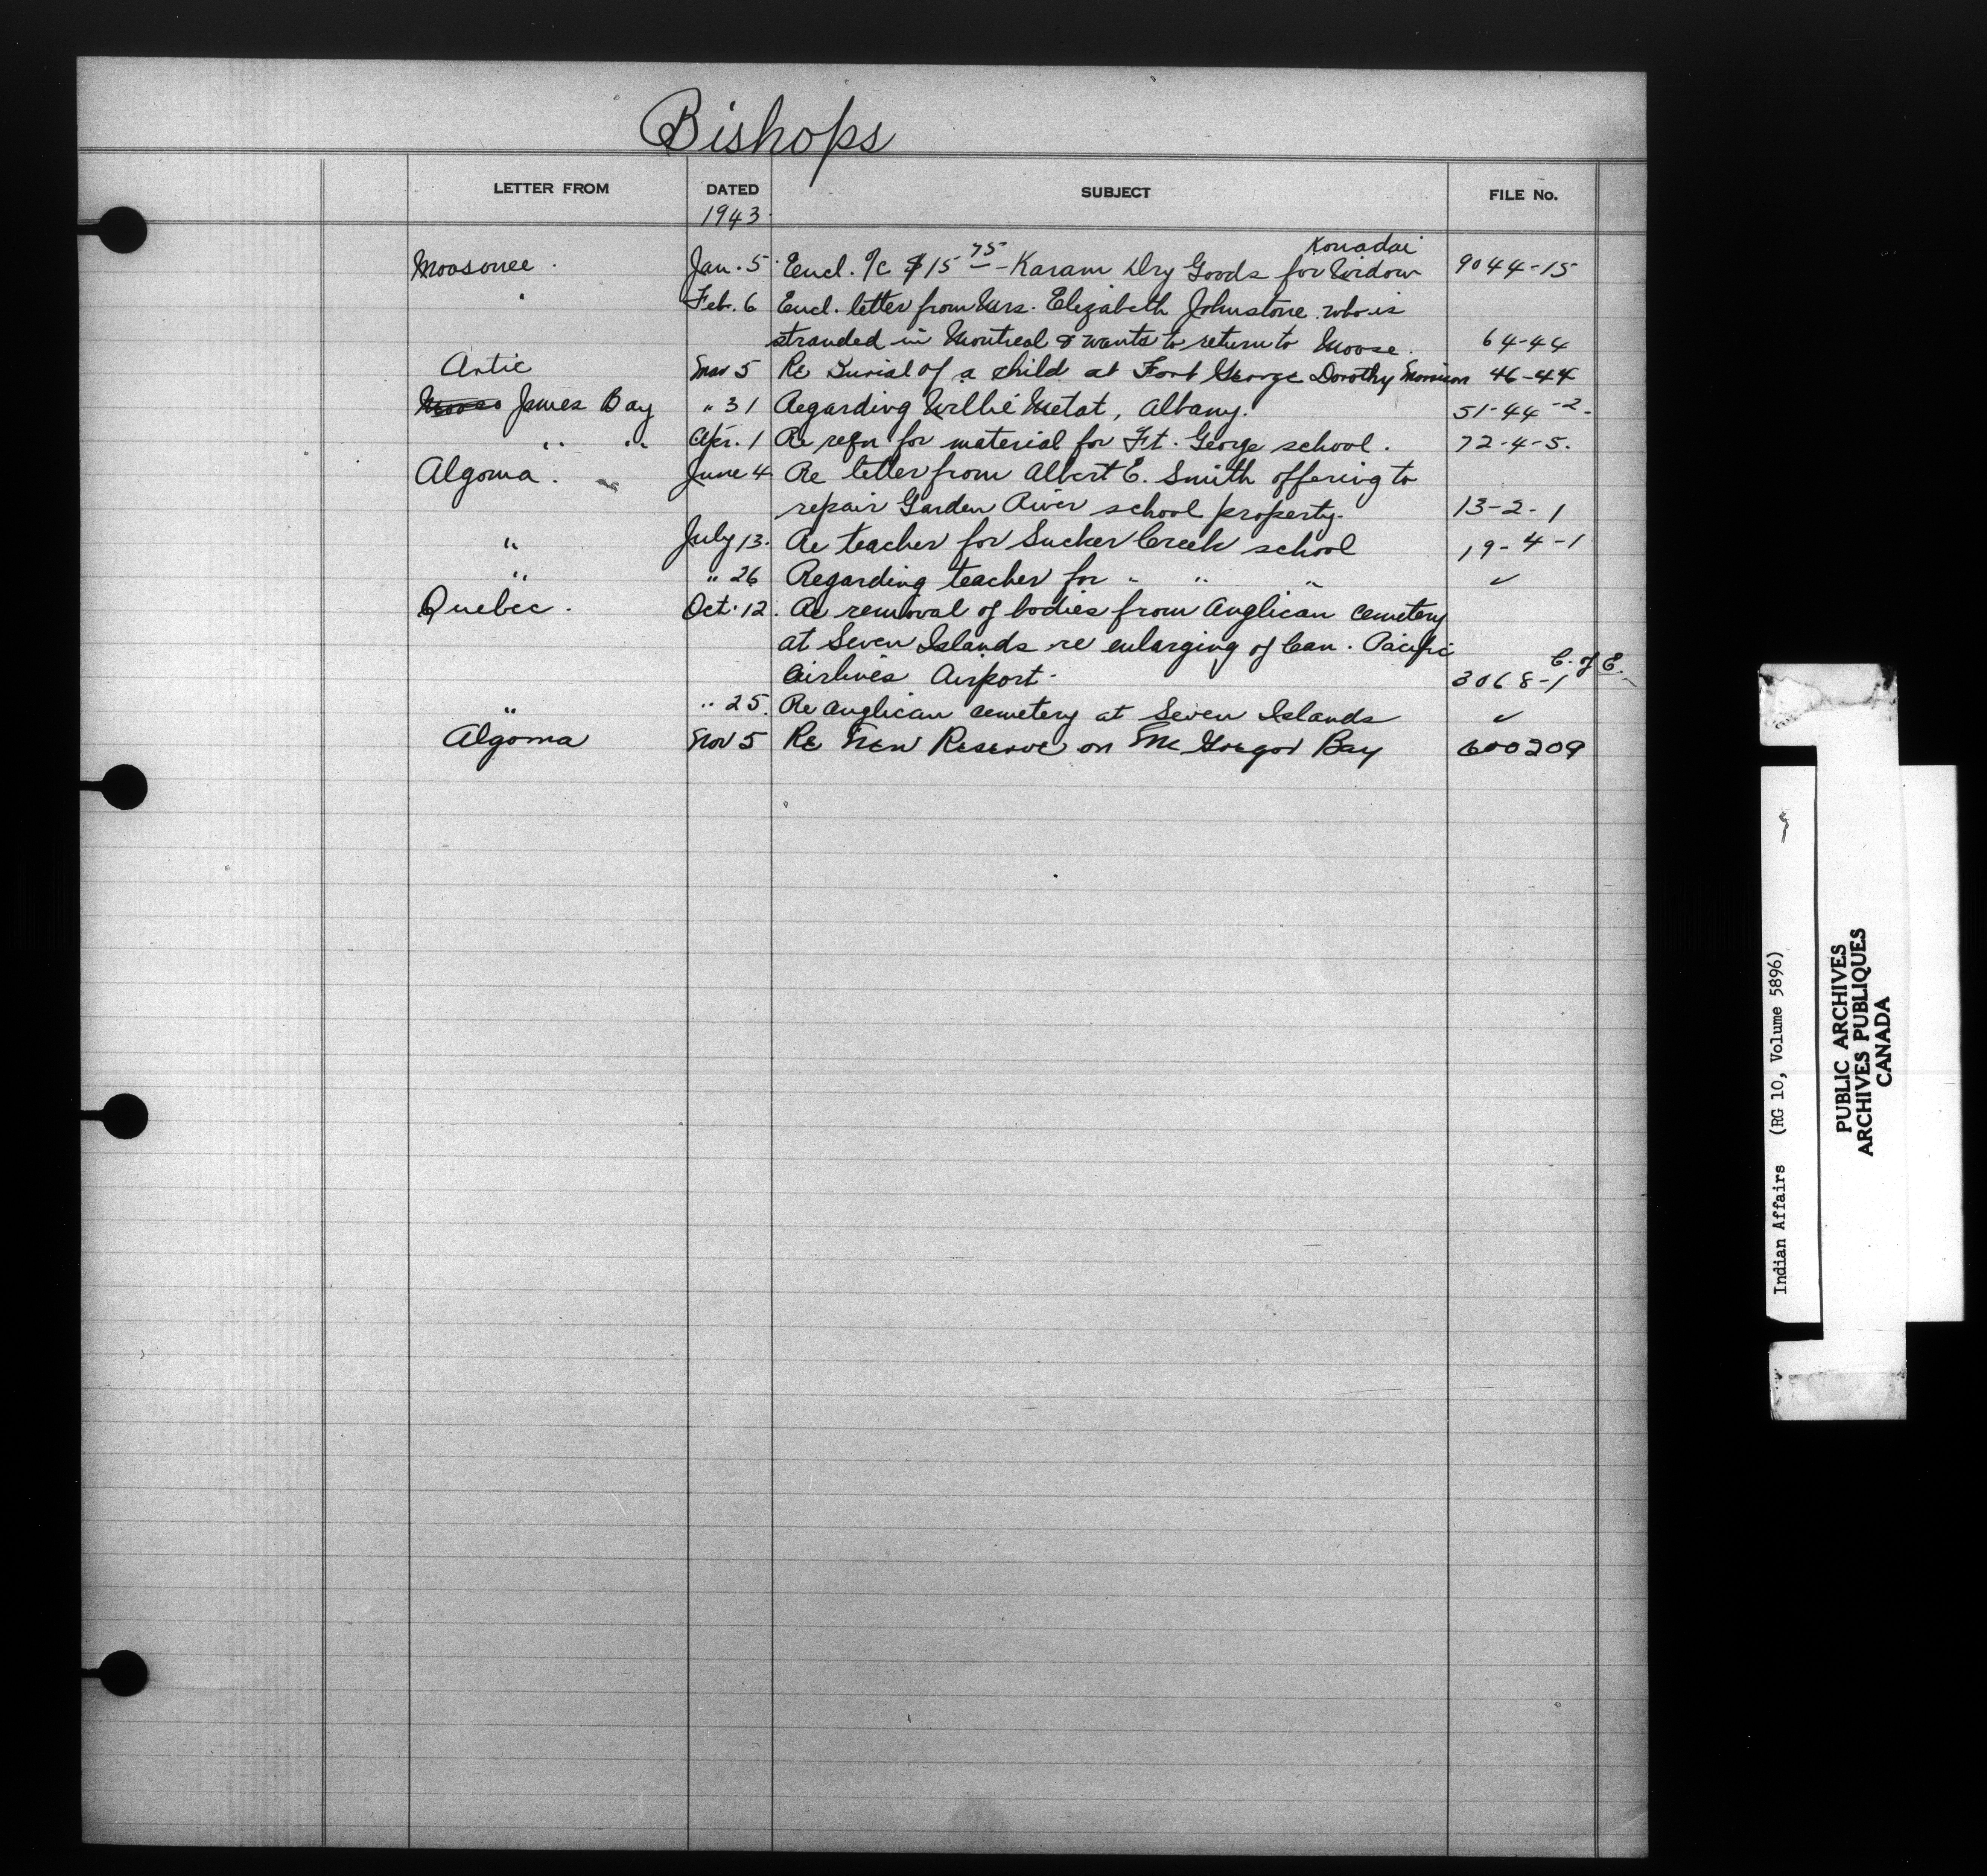 Bishops
LETTER FROM DATED SUBJECT FILE No.
1943
Konadai
Moosonee. Jan. 5 Encl. a/c $15 75 - Karam Dry Goods for Widow 9044-15
" Feb. 6 Encl. letter from Mrs. Elizabeth Johnstone who is
stranded in Montreal & wants to return to Moose. 64-44
Artic Mar 5 Re Burial of a child at Fort George Dorothy Morrison 46-44
James Bay " 31 Regarding Willie Metat, Albany. 51-44-2-
" " Apr. 1 Re reqn for material for Ft. George school. 72-4-5.
Algoma. June 4 Re letter from Albert E. Smith offering to
repair Garden River school property. 13-2-1
" July 13. Re teacher for Sucker Creek school 19-4-1
" " 26 Regarding teacher for " " " ✓
Quebec. Oct. 12. Re removal of bodies from Anglican cemetery
at Seven Islands re enlarging of Can. Pacific
Airlines Airport- 3068-1 C. of E.
" " 25. Re Anglican cemetery at Seven Islands ✓
Algoma Nov 5 Re New Reserve on McGregor Bay 600209
Indian Affairs (RG 10, Volume 5896)
PUBLIC ARCHIVES
ARCHIVES PUBLIQUES
CANADA